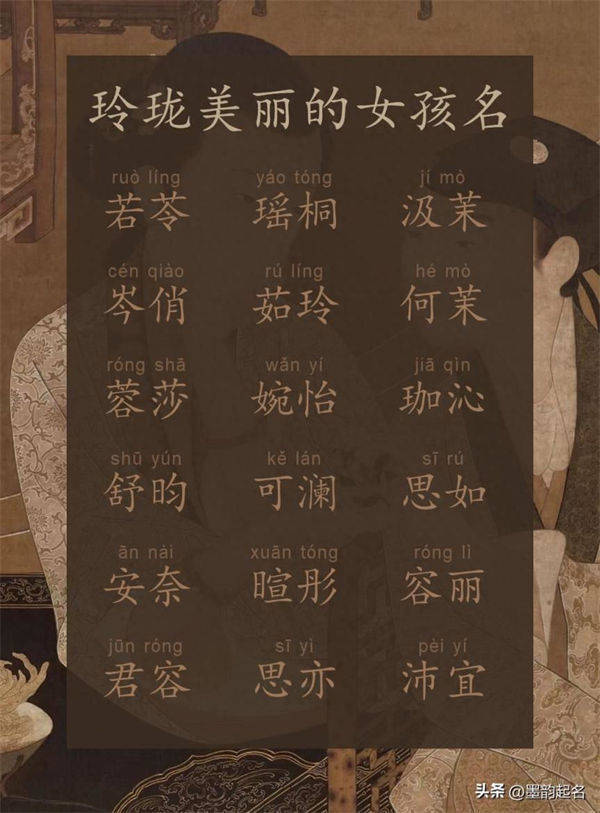 玲珑美丽的女孩名
ruò líng yáo tóng jí mò
若苓 瑶桐 汲茉
cén qiào rú líng hé mò
岑俏 茹玲 何茉
róng shā wǎn yí jiā qìn
蓉莎 婉怡 珈沁
shū yún kě lán sī rú
舒昀 可澜 思如
ān nài xuān tóng róng lì
安奈 暄彤 容丽
jūn róng sī yì pèi yí
君容 思亦 沛宜
头条 @墨韵起名